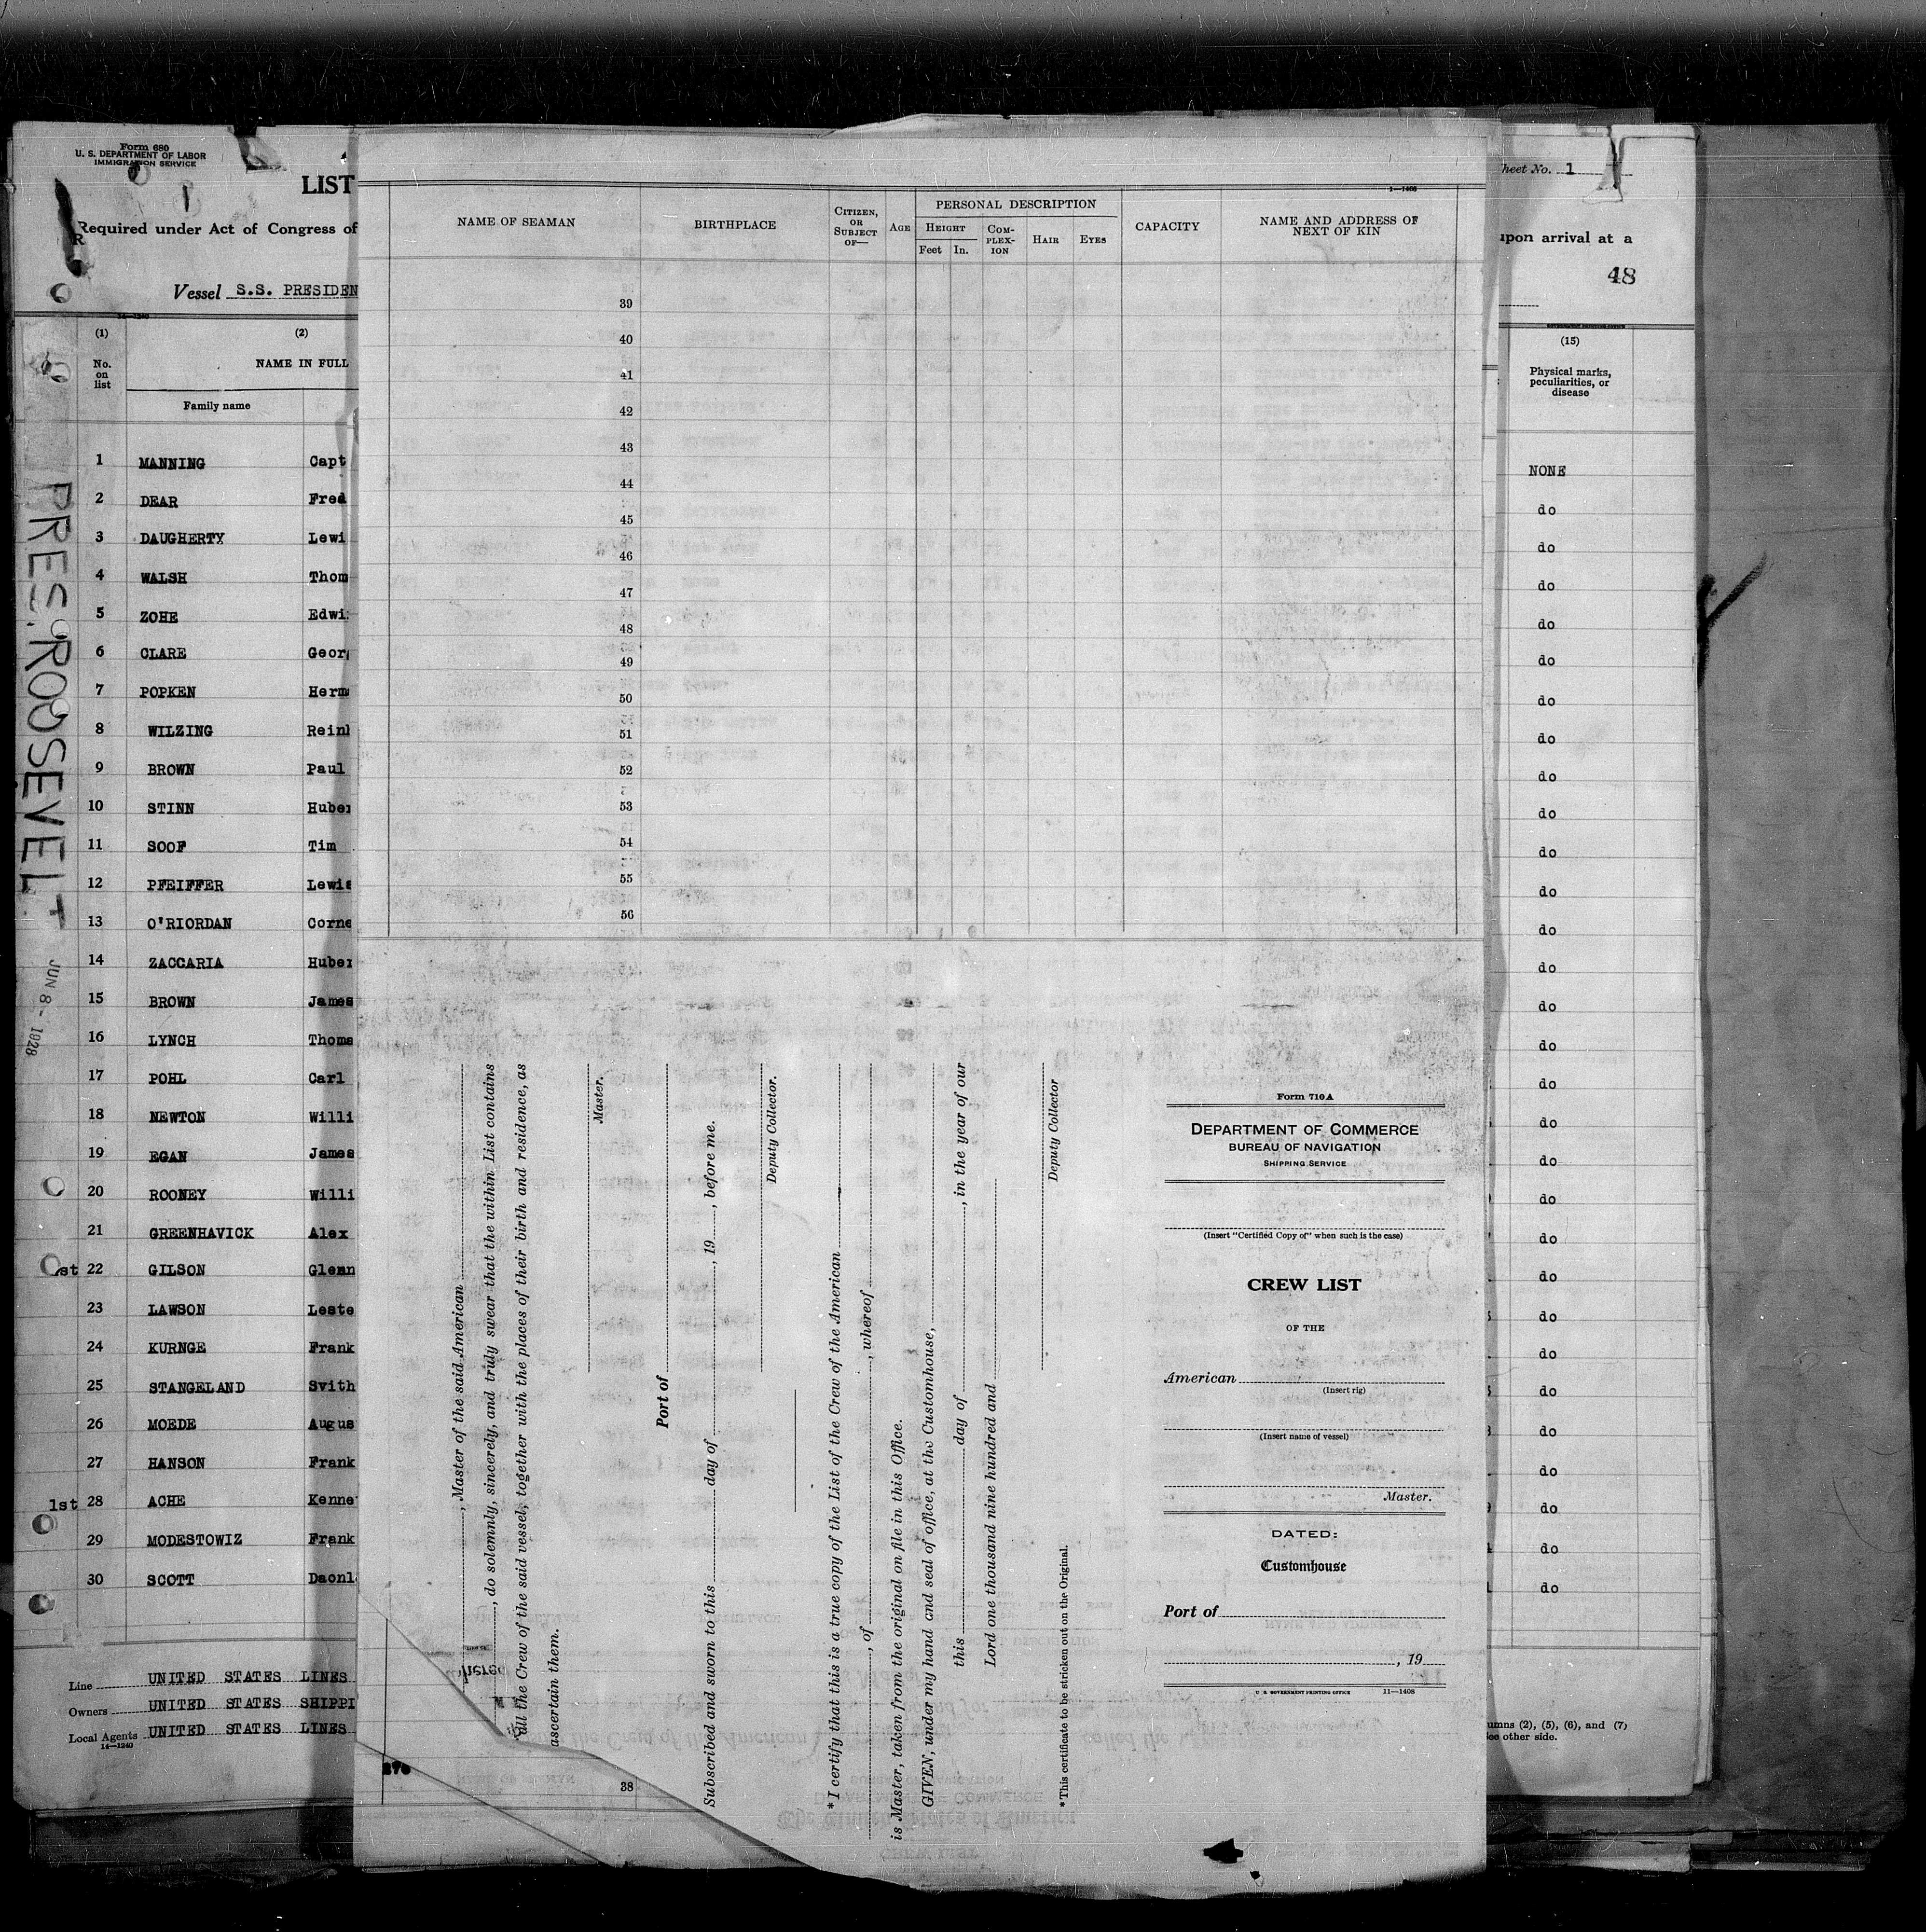 Form 680
U. S. DEPARTMENT OF LABOR
IMMIGRATION SERVICE
LIST
Required under Act of Congress of
Vessel S.S. PRESIDEN
14—1240
(1) (2)
No. on list
NAME IN FULL
Family name
1 MANNING Capt
2 DEAR Fred
3 DAUGHERTY Lewi
4 WALSH Thom
5 ZOHE Edwi
6 CLARE Geor
7 POPKEN Herm
8 WILZING Rein
9 BROWN Paul
10 STINN Huber
11 SOOF Tim
12 PFEIFFER Lewis
13 O'RIORDAN Corne
14 ZACCARIA Huber
15 BROWN James
16 LYNCH Thoma
17 POHL Carl
18 NEWTON Willi
19 EGAN James
20 ROONEY Willi
21 GREENHAVICK Alex
st 22 GILSON Glenn
23 LAWSON Leste
24 KURNGE Frank
25 STANGELAND Svith
26 MOEDE Augus
27 HANSON Frank
1st 28 ACHE Kenne
29 MODESTOWIZ Frank
30 SCOTT Daonl
Line UNITED STATES LINES
Owners UNITED STATES SHIPPI
Local Agents UNITED STATES LINES
14—1240
PRES. ROOSEVELT
JUN 8 - 1928
1—1408
NAME OF SEAMAN
BIRTHPLACE
CITIZEN, OR SUBJECT OF—
AGE
PERSONAL DESCRIPTION
HEIGHT
Feet In.
COM-PLEX-ION
HAIR
EYES
CAPACITY
NAME AND ADDRESS OF NEXT OF KIN
39
40
41
42
43
44
45
46
47
48
49
50
51
52
53
54
55
56
, Master of the said American
, do solemnly, sincerely, and truly swear that the within List contains
all the Crew of the said vessel, together with the places of their birth and residence, as
ascertain them.
Master.
Port of
Subscribed and sworn to this day of , 19 , before me.
Deputy Collector.
*I certify that this is a true copy of the List of the Crew of the American
, of , whereof
is Master, taken from the original on file in this Office.
GIVEN, under my hand and seal of office, at the Customhouse,
this day of , in the year of our
Lord one thousand nine hundred and
Deputy Collector
*This certificate to be stricken out on the Original.
38
Form 710A
DEPARTMENT OF COMMERCE
BUREAU OF NAVIGATION
SHIPPING SERVICE
(Insert "Certified Copy of" when such is the case)
CREW LIST
OF THE
American
(Insert rig)
(Insert name of vessel)
Master.
DATED:
Customhouse
Port of
, 19
U. S. GOVERNMENT PRINTING OFFICE 11—1408
heet No. 1
upon arrival at a
48
(15)
Physical marks, peculiarities, or disease
NONE
do
do
do
do
do
do
do
do
do
do
do
do
do
do
do
do
do
do
do
do
do
do
do
do
do
do
do
do
do
umns (2), (5), (6), and (7)
ee other side.